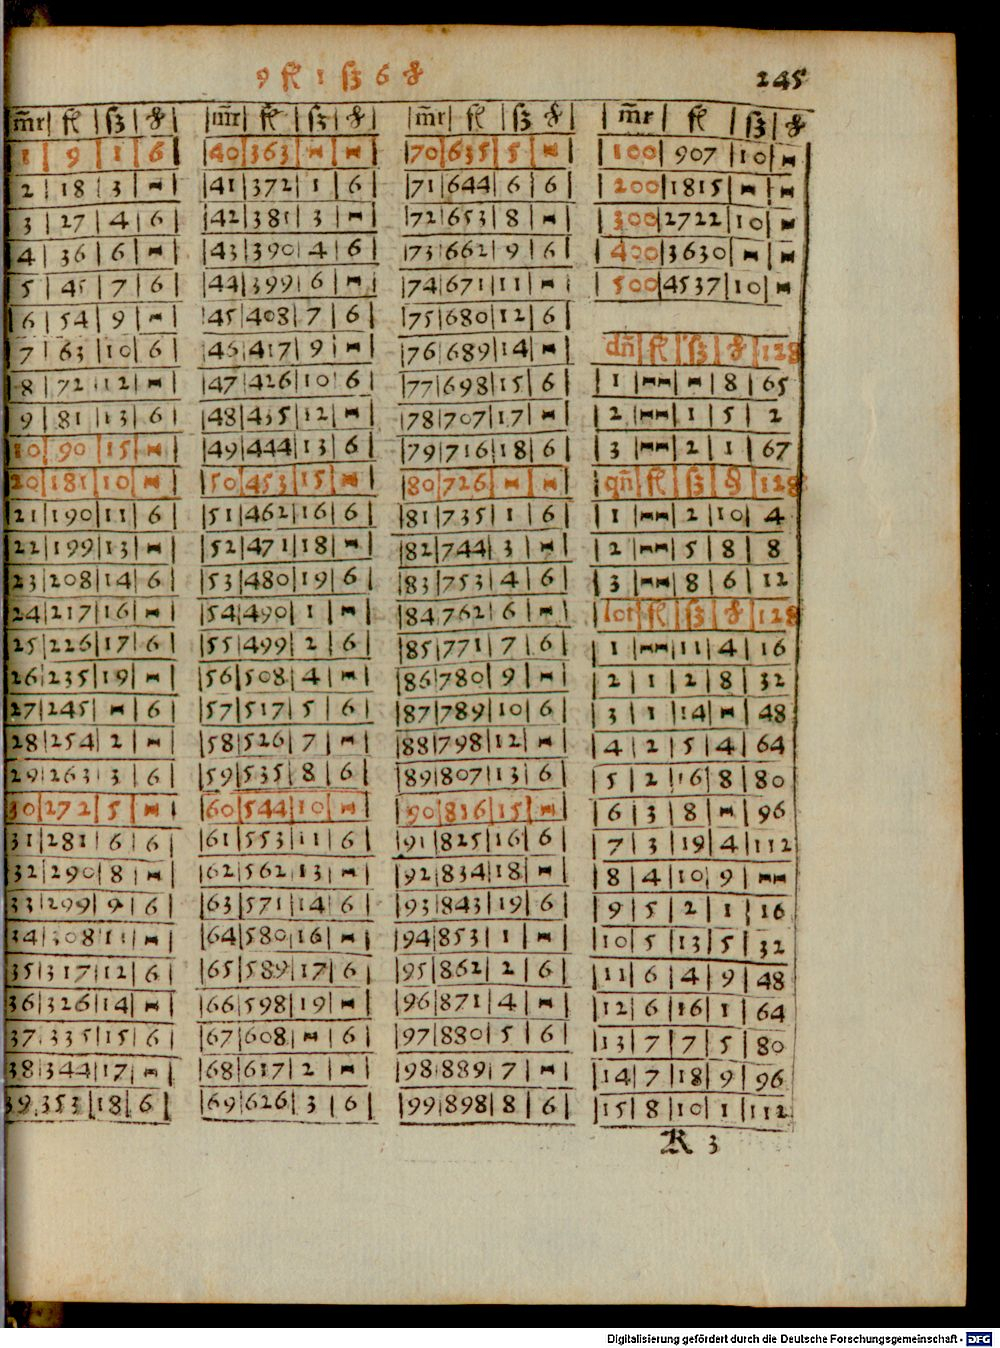 9 fl 1 ß 6 ₰
245
m̃r | fl | ß | ₰ | m̃r | fl | ß | ₰ | m̃r | fl | ß | ₰ | m̃r | fl | ß | ₰
1 | 9 | 1 | 6 | 40 | 363 | ⑊ | ⑊ | 70 | 635 | 5 | ⑊ | 100 | 907 | 10 | ⑊
2 | 18 | 3 | ⑊ | 41 | 372 | 1 | 6 | 71 | 644 | 6 | 6 | 200 | 1815 | ⑊ | ⑊
3 | 27 | 4 | 6 | 42 | 381 | 3 | ⑊ | 72 | 653 | 8 | ⑊ | 300 | 2722 | 10 | ⑊
4 | 36 | 6 | ⑊ | 43 | 390 | 4 | 6 | 73 | 662 | 9 | 6 | 400 | 3630 | ⑊ | ⑊
5 | 45 | 7 | 6 | 44 | 399 | 6 | ⑊ | 74 | 671 | 11 | ⑊ | 500 | 4537 | 10 | ⑊
6 | 54 | 9 | ⑊ | 45 | 408 | 7 | 6 | 75 | 680 | 12 | 6
7 | 63 | 10 | 6 | 46 | 417 | 9 | ⑊ | 76 | 689 | 14 | ⑊ | dñ | fl | ß | ₰ | 128
8 | 72 | 12 | ⑊ | 47 | 426 | 10 | 6 | 77 | 698 | 15 | 6 | 1 | ⑊⑊ | ⑊ | 8 | 65
9 | 81 | 13 | 6 | 48 | 435 | 12 | ⑊ | 78 | 707 | 17 | ⑊ | 2 | ⑊⑊ | 1 | 5 | 2
10 | 90 | 15 | ⑊ | 49 | 444 | 13 | 6 | 79 | 716 | 18 | 6 | 3 | ⑊⑊ | 2 | 1 | 67
20 | 181 | 10 | ⑊ | 50 | 453 | 15 | ⑊ | 80 | 726 | ⑊ | ⑊ | qñ | fl | ß | ₰ | 128
21 | 190 | 11 | 6 | 51 | 462 | 16 | 6 | 81 | 735 | 1 | 6 | 1 | ⑊⑊ | 2 | 10 | 4
22 | 199 | 13 | ⑊ | 52 | 471 | 18 | ⑊ | 82 | 744 | 3 | ⑊ | 2 | ⑊⑊ | 5 | 8 | 8
23 | 208 | 14 | 6 | 53 | 480 | 19 | 6 | 83 | 753 | 4 | 6 | 3 | ⑊⑊ | 8 | 6 | 12
24 | 217 | 16 | ⑊ | 54 | 490 | 1 | ⑊ | 84 | 762 | 6 | ⑊ | lot | fl | ß | ₰ | 128
25 | 226 | 17 | 6 | 55 | 499 | 2 | 6 | 85 | 771 | 7 | 6 | 1 | ⑊⑊ | 11 | 4 | 16
26 | 235 | 19 | ⑊ | 56 | 508 | 4 | ⑊ | 86 | 780 | 9 | ⑊ | 2 | 1 | 2 | 8 | 32
27 | 245 | ⑊ | 6 | 57 | 517 | 5 | 6 | 87 | 789 | 10 | 6 | 3 | 1 | 14 | ⑊ | 48
28 | 254 | 2 | ⑊ | 58 | 526 | 7 | ⑊ | 88 | 798 | 12 | ⑊ | 4 | 2 | 5 | 4 | 64
29 | 263 | 3 | 6 | 59 | 535 | 8 | 6 | 89 | 807 | 13 | 6 | 5 | 2 | 16 | 8 | 80
30 | 272 | 5 | ⑊ | 60 | 544 | 10 | ⑊ | 90 | 816 | 15 | ⑊ | 6 | 3 | 8 | ⑊ | 96
31 | 281 | 6 | 6 | 61 | 553 | 11 | 6 | 91 | 825 | 16 | 6 | 7 | 3 | 19 | 4 | 112
32 | 290 | 8 | ⑊ | 62 | 562 | 13 | ⑊ | 92 | 834 | 18 | ⑊ | 8 | 4 | 10 | 9 | ⑊⑊
33 | 299 | 9 | 6 | 63 | 571 | 14 | 6 | 93 | 843 | 19 | 6 | 9 | 5 | 2 | 1 | 16
34 | 308 | 11 | ⑊ | 64 | 580 | 16 | ⑊ | 94 | 853 | 1 | ⑊ | 10 | 5 | 13 | 5 | 32
35 | 317 | 12 | 6 | 65 | 589 | 17 | 6 | 95 | 862 | 2 | 6 | 11 | 6 | 4 | 9 | 48
36 | 326 | 14 | ⑊ | 66 | 598 | 19 | ⑊ | 96 | 871 | 4 | ⑊ | 12 | 6 | 16 | 1 | 64
37 | 335 | 15 | 6 | 67 | 608 | ⑊ | 6 | 97 | 880 | 5 | 6 | 13 | 7 | 7 | 5 | 80
38 | 344 | 17 | ⑊ | 68 | 617 | 2 | ⑊ | 98 | 889 | 7 | ⑊ | 14 | 7 | 18 | 9 | 96
39 | 353 | 18 | 6 | 69 | 626 | 3 | 6 | 99 | 898 | 8 | 6 | 15 | 8 | 10 | 1 | 112
R 3
Digitalisierung gefördert durch die Deutsche Forschungsgemeinschaft - DFG